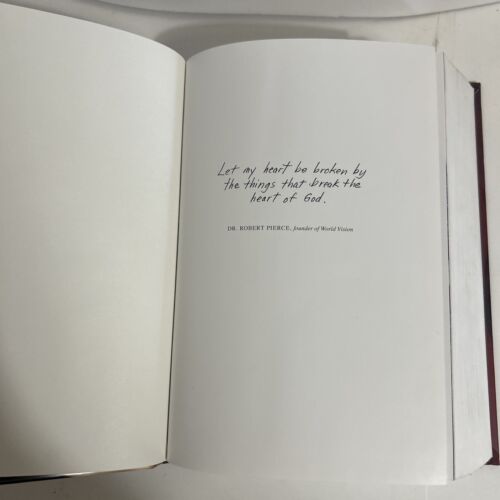 Let my heart be broken by
the things that break the
heart of God.
DR. ROBERT PIERCE, founder of World Vision